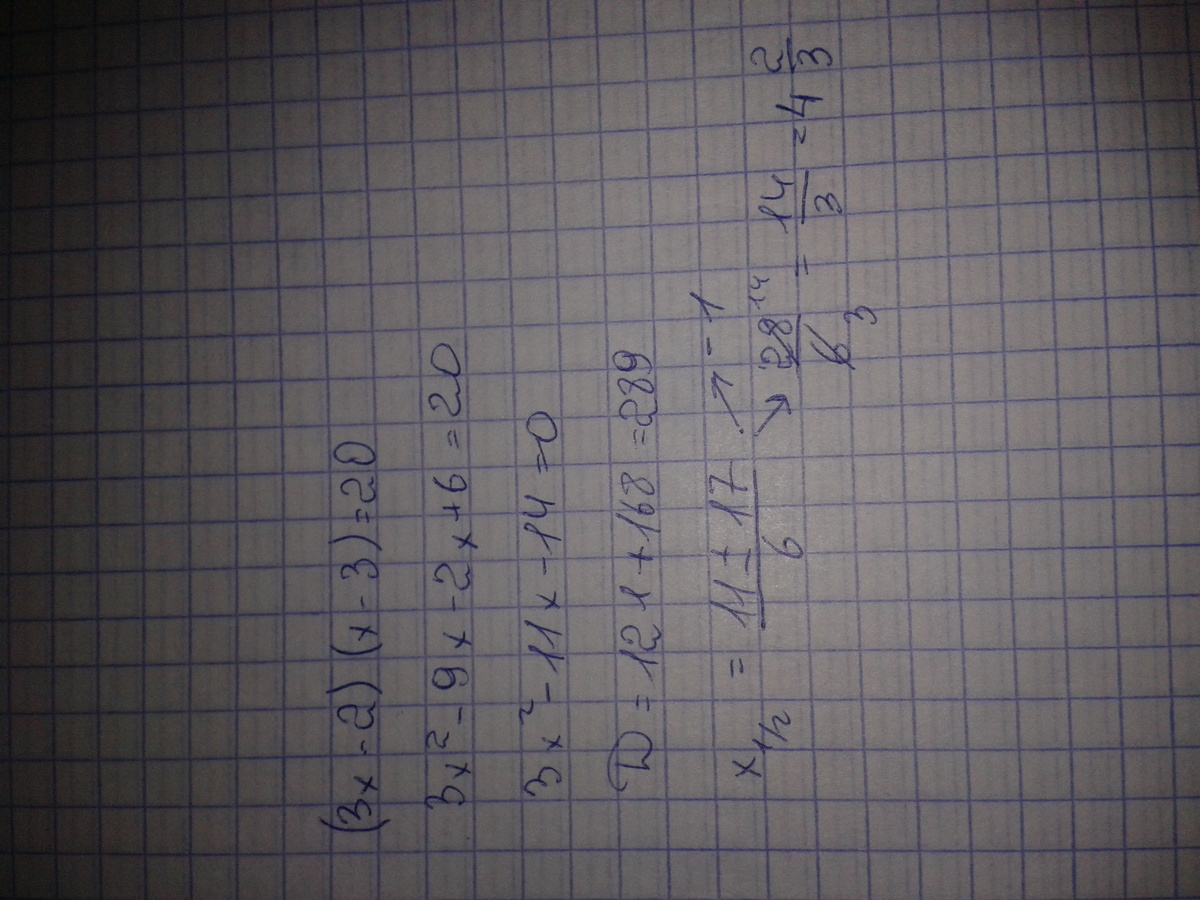 (3x-2)(x-3)=20
3x²-9x-2x+6=20
3x²-11x-14=0
D=121+168=289
x1/2 = 11±17/6 ↗ -1
↘ 28/6 14 3 = 14/3 = 4 2/3